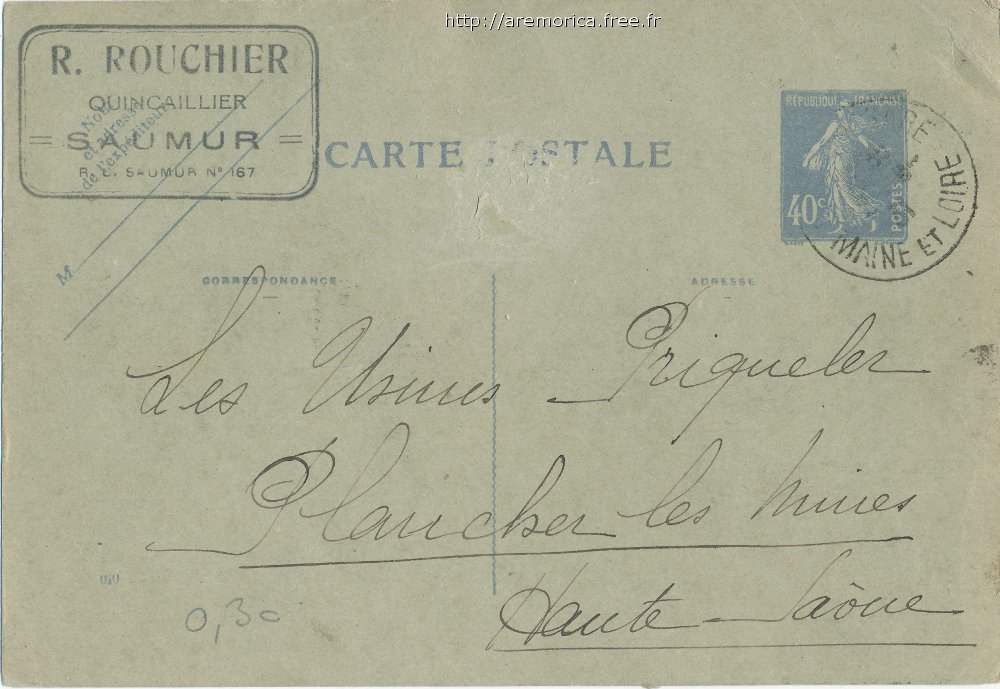 http://aremorica.free.fr
R. ROUCHIER
QUINCAILLIER
= SAUMUR =
R. C. SAUMUR Nº 167
Nom
et adresse
de l'expéditeur
M
CARTE POSTALE
RÉPUBLIQUE FRANÇAISE
40c
POSTES
MAINE ET LOIRE
CORRESPONDANCE
ADRESSE
Les Usines Priqueler
Plancher les Mines
Haute-Saône
040
0,30